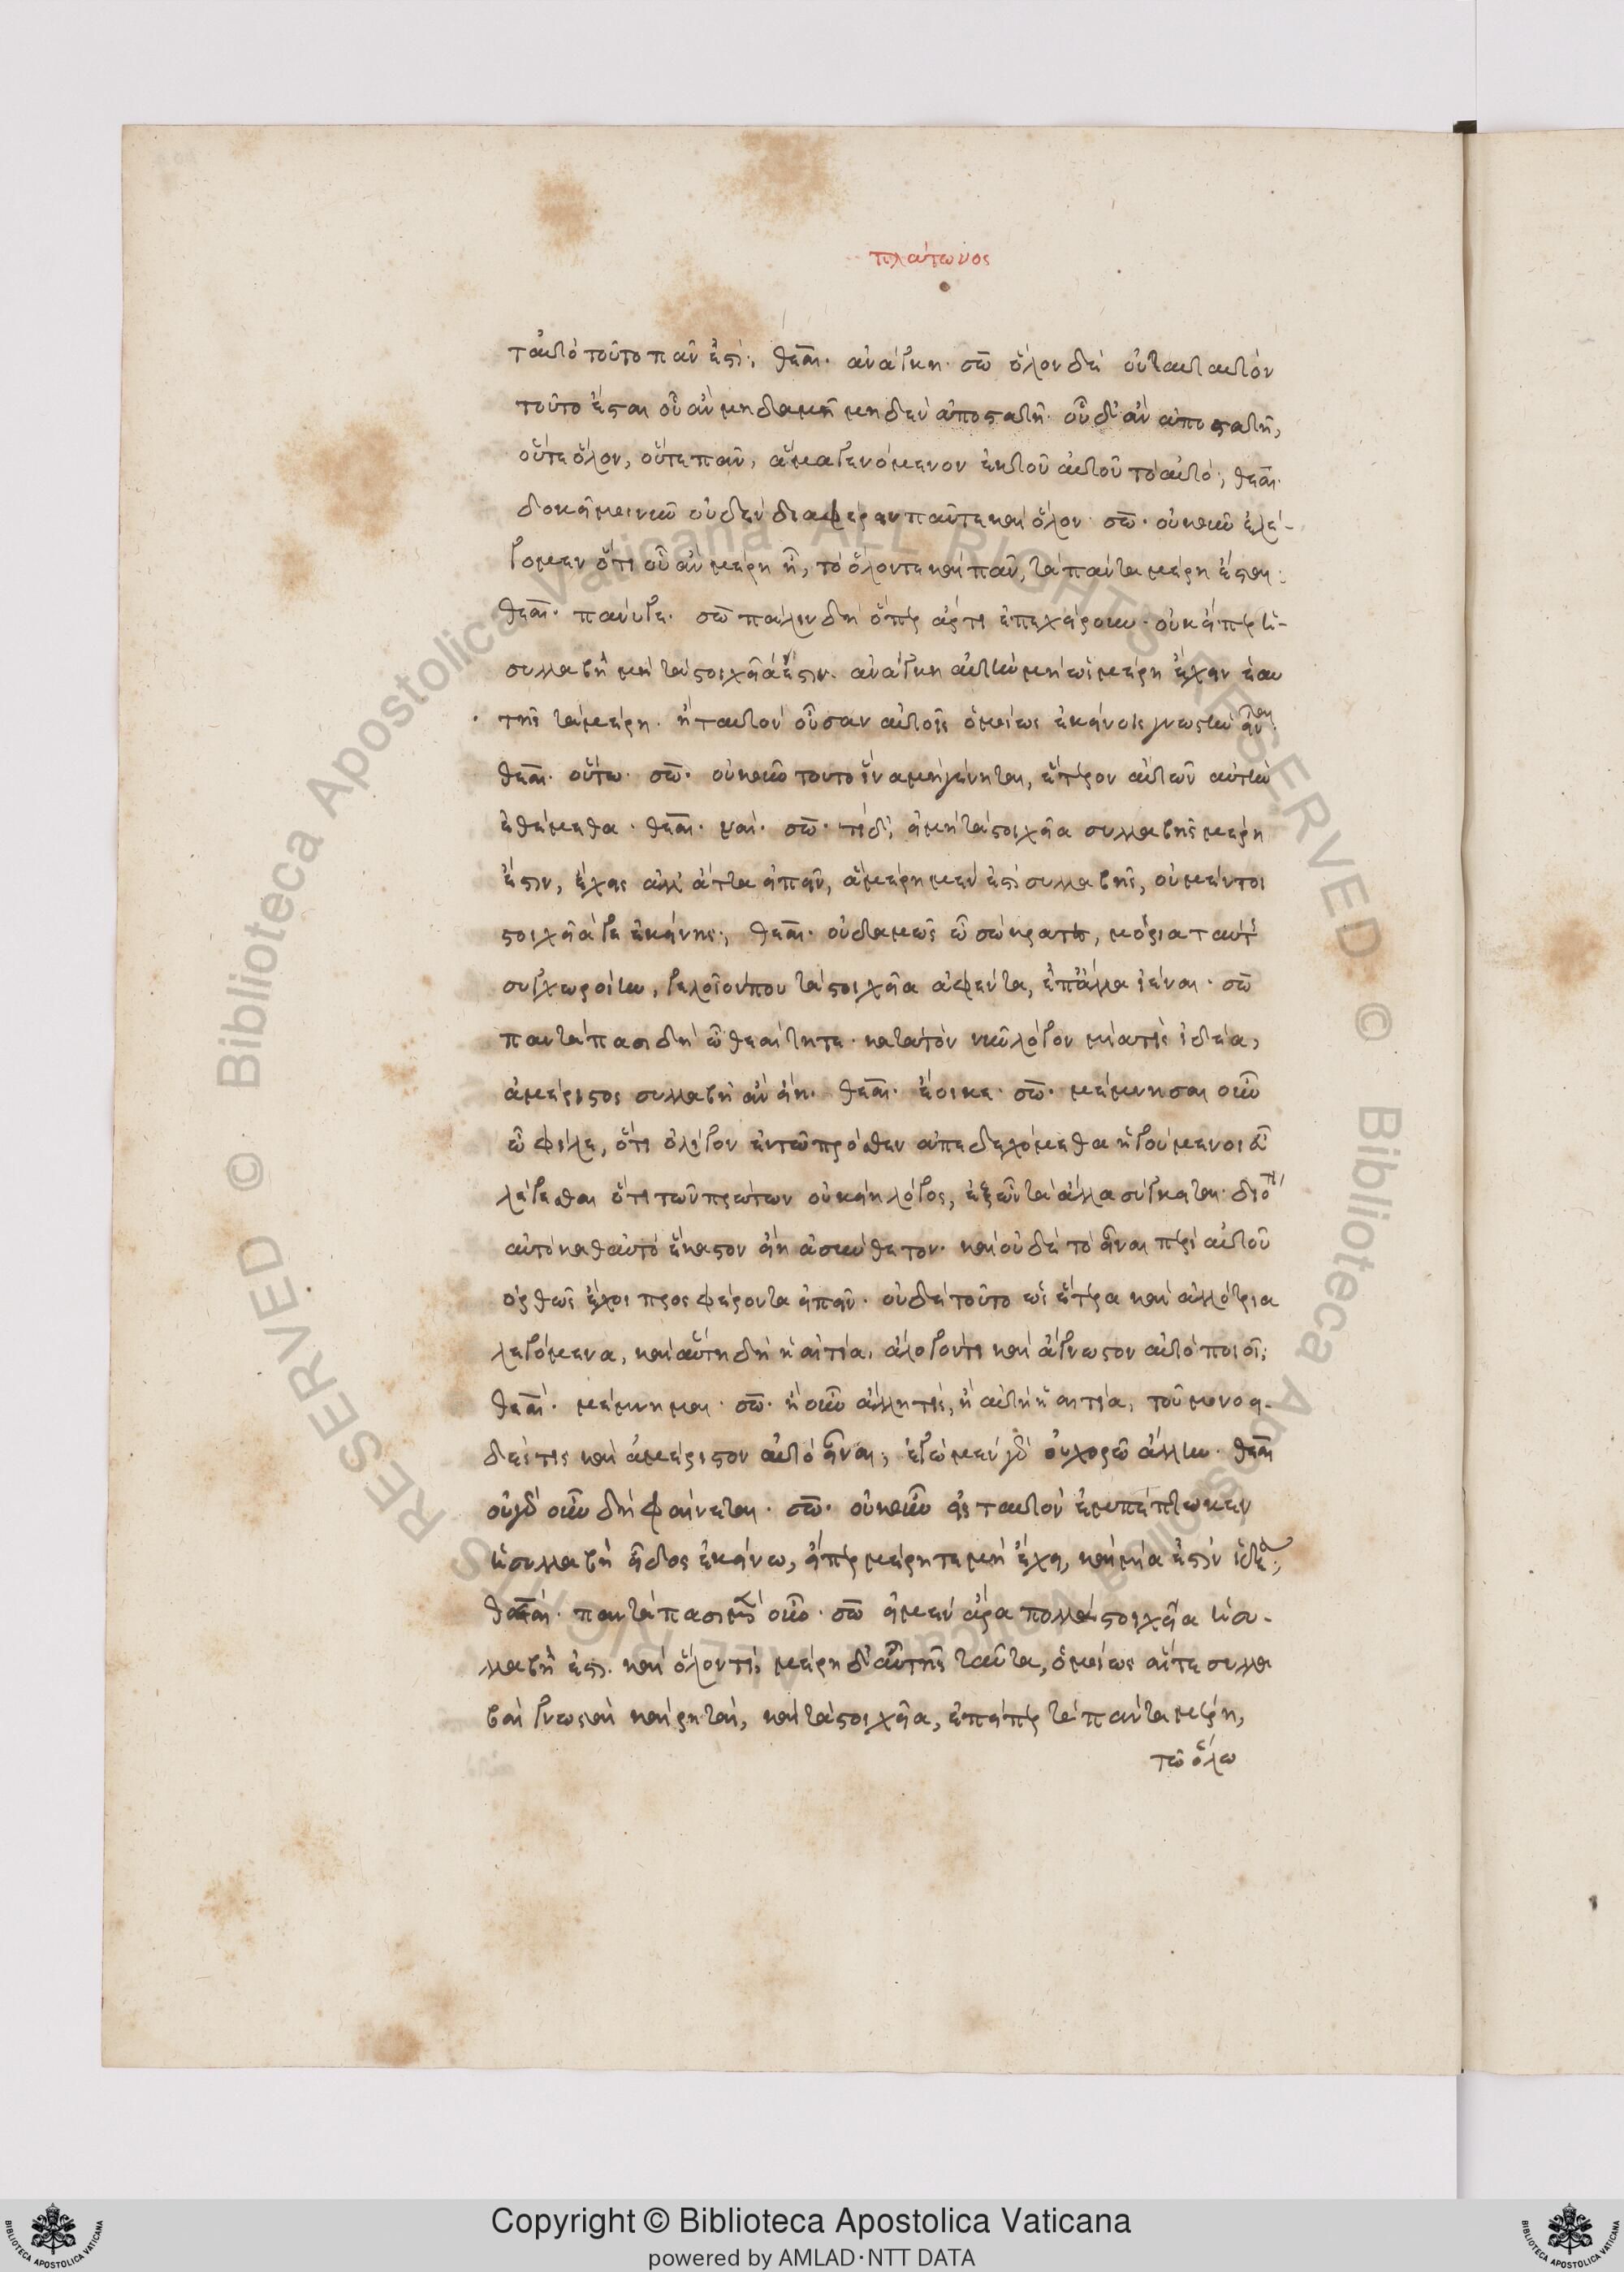 πλάτωνος
τ' αὐτὸ τοῦτο πᾶν ἐστί; θεαί. ἀνάγκη. σω ὅλον δὲ οὐ ταυταυτὸν
τοῦτο ἔσται οὗ ἂν μηδαμῆ μηδὲν ἀποστατῆ. οὗ δ' ἂν ἀποστατῆ,
οὔτε ὅλον, οὔτε πᾶν, ἅμα γενόμενον ἐκ τοῦ αὐτοῦ τὸ αὐτό; θεαί.
δοκεῖ μοι νῦν οὐδὲν διαφέρειν πᾶν τε καὶ ὅλον. σω. οὐκοῦν ἐλέ-
γομεν ὅτι οὗ ἂν μέρη ἦ, τὸ ὅλον τε καὶ πᾶν, τὰ πάντα μέρη ἔσται:
θεαί. πάνυ γε. σω πάλιν δὴ ὅπερ ἄρτι ἐπεχείρουν. οὐκ εἴπερ ἡ-
συλλαβὴ μὴ τὰ στοιχεῖά ἐστιν. ἀνάγκη αὐτὴν μὴ ὡς μέρη ἔχειν ἑαυ
τῆς τὰ μέρη. ἢ ταυτὸν οὖσαν αὐτοῖς ὁμοίως ἐκείνοις γνωστὴν εἶναι.
θεαί. οὕτω. σω. οὐκοῦν τοῦτο ἵνα μὴ γένηται, ἕτερον αὐτῶν αὐτὴν
ἐθέμεθα. θεαί. ναί. σω. τί δ', εἰ μὴ τὰ στοιχεῖα συλλαβῆς μέρη
ἐστιν, ἔχεις ἀλλ' ἄττα εἰπεῖν, ἃ μέρη μέν ἐστι συλλαβῆς, οὐ μέντοι
στοιχεῖά γε ἐκείνης; θεαί. οὐδαμῶς ὦ σώκρατες, μόρια ταύτ
συγχωροίην, γελοῖόν που τὰ στοιχεῖα ἀφέντα, ἐπ' ἄλλα ἰέναι. σω
πανταπασι δὴ ὦ θεαίτητε. κατὰ τὸν νῦν λόγον μία τις ἰδέα,
ἀμέριστος συλλαβὴ ἂν εἴη. θεαί. ἔοικε. σω. μέμνησαι οὖν
ὦ φίλε, ὅτι ὀλίγον ἐν τῶ πρόσθεν ἀπεδεχόμεθα ἡγούμενοι εὖ
λέγεσθαι ὅτι τῶν πρώτων οὐκ εἴη λόγος, ἐξ ὧν τὰ ἄλλα σύγκειται. διότι
αὐτὸ καθ αὑτὸ ἕκαστον εἴη ἀσύνθετον. καὶ οὐδὲ τὸ εἶναι περὶ αὐτοῦ
ὀρθῶς ἔχοι προσφέροντα εἰπεῖν. οὐδὲ τοῦτο ὡς ἕτερα καὶ ἀλλότρια
λεγόμενα, καὶ αὕτη δὴ ἡ αἰτία, ἄλογόν τε καὶ ἄγνωστον αὐτὸ ποιοῖ;
θεαί. μέμνημαι. σω. ἦ οὖν ἄλλη τις, ἢ αὐτὴ ἡ αἰτία, τοῦ μονοει-
δές τις καὶ ἀμέριστον αὐτὸ εἶναι; ἐγὼ μὲν γὰρ οὐχ ὁρῶ ἄλλην. θεαί
οὐ γὰρ οὖν δὴ φαίνεται. σω. οὐκοῦν εἰς ταυτὸν ἐμπέπτωκεν
ἡ συλλαβὴ εἶδος ἐκείνω, εἴπερ μέρη τε μὴ ἔχει, καὶ μία ἐστὶν ἰδέα;
θεαί. παντάπασι μὲν οὖν. σω εἰ μὲν ἄρα πολλὰ στοιχεῖα ἡ συ-
λλαβή ἐστι. καὶ ὅλον τι, μέρη δ' αὐτῆς ταῦτα, ὁμοίως αἵ τε συλλα
βαὶ γνωσταὶ καὶ ῥηταὶ, καὶ τὰ στοιχεῖα, ἐπείπερ τὰ πάντα μέρη,
τῶ ὅλω
Copyright © Biblioteca Apostolica Vaticana
powered by AMLAD·NTT DATA